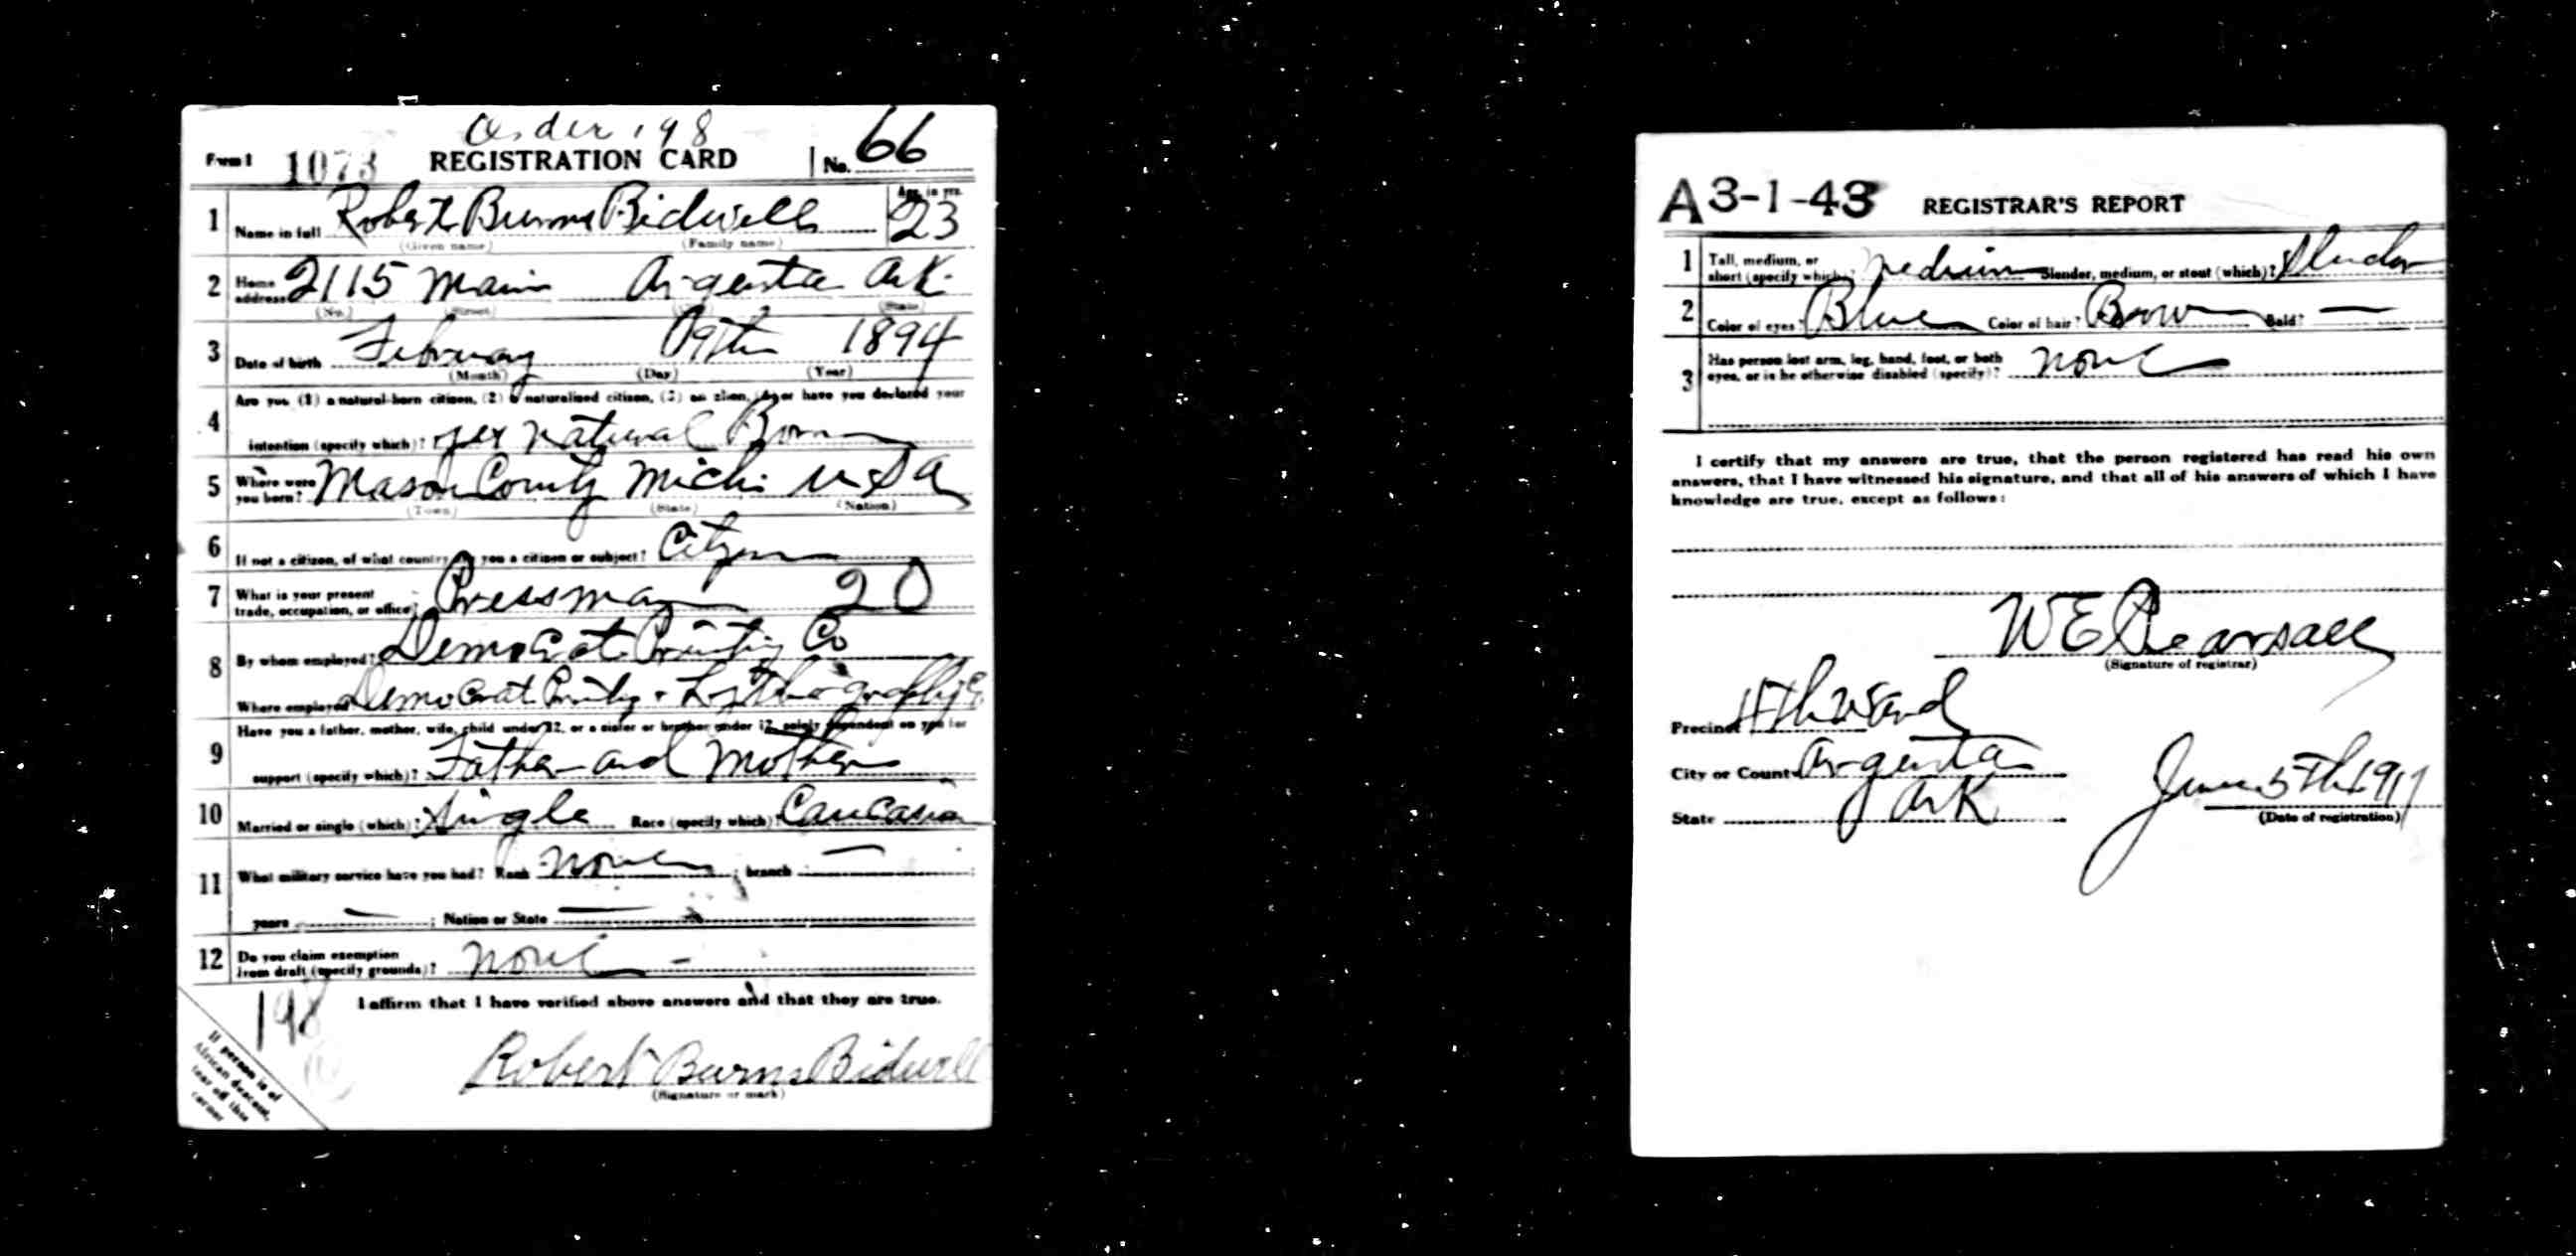 Order 198
Form 1 1073 REGISTRATION CARD No. 66
1 Name in full Robert Burns Bidwell Age, in yrs. 23
(Given name) (Family name)
2 Home address 2115 Main Argenta Ark.
(No.) (Street) (State)
3 Date of birth February 09th 1894
(Month) (Day) (Year)
Are you (1) a natural-born citizen, (2) a naturalized citizen, (3) an alien, (4) or have you declared your
4 intention (specify which)? yes natural Born
5 Where were you born? Mason County Mich. USA
(Town) (State) (Nation)
6 If not a citizen, of what country are you a citizen or subject? Citizen
7 What is your present trade, occupation, or office? Pressman 20
8 By whom employed? Democrat Printing Co
Where employed? Democrat Printing + Lithography Co
Have you a father, mother, wife, child under 12, or a sister or brother under 12, solely dependent on you for
9 support (specify which)? Father and Mother
10 Married or single (which)? Single Race (specify which)? Caucasian
11 What military service have you had? Rank None ; branch —
years — ; Nation or State —
12 Do you claim exemption from draft (specify grounds)? None -
198 I affirm that I have verified above answers and that they are true.
Robert Burns Bidwell
(Signature or mark)
If person is of
African descent,
tear off this
corner
A3-1-43 REGISTRAR'S REPORT
1 Tall, medium, or short (specify which)? Medium Slender, medium, or stout (which)? Slender
2 Color of eyes? Blue Color of hair? Brown Bald? —
3 Has person lost arm, leg, hand, foot, or both eyes, or is he otherwise disabled (specify)? None
I certify that my answers are true, that the person registered has read his own
answers, that I have witnessed his signature, and that all of his answers of which I have
knowledge are true, except as follows:
W E Pearsall
(Signature of registrar)
Precinct 4th Ward
City or County Argenta
State Ark
June 5th 1917
(Date of registration)